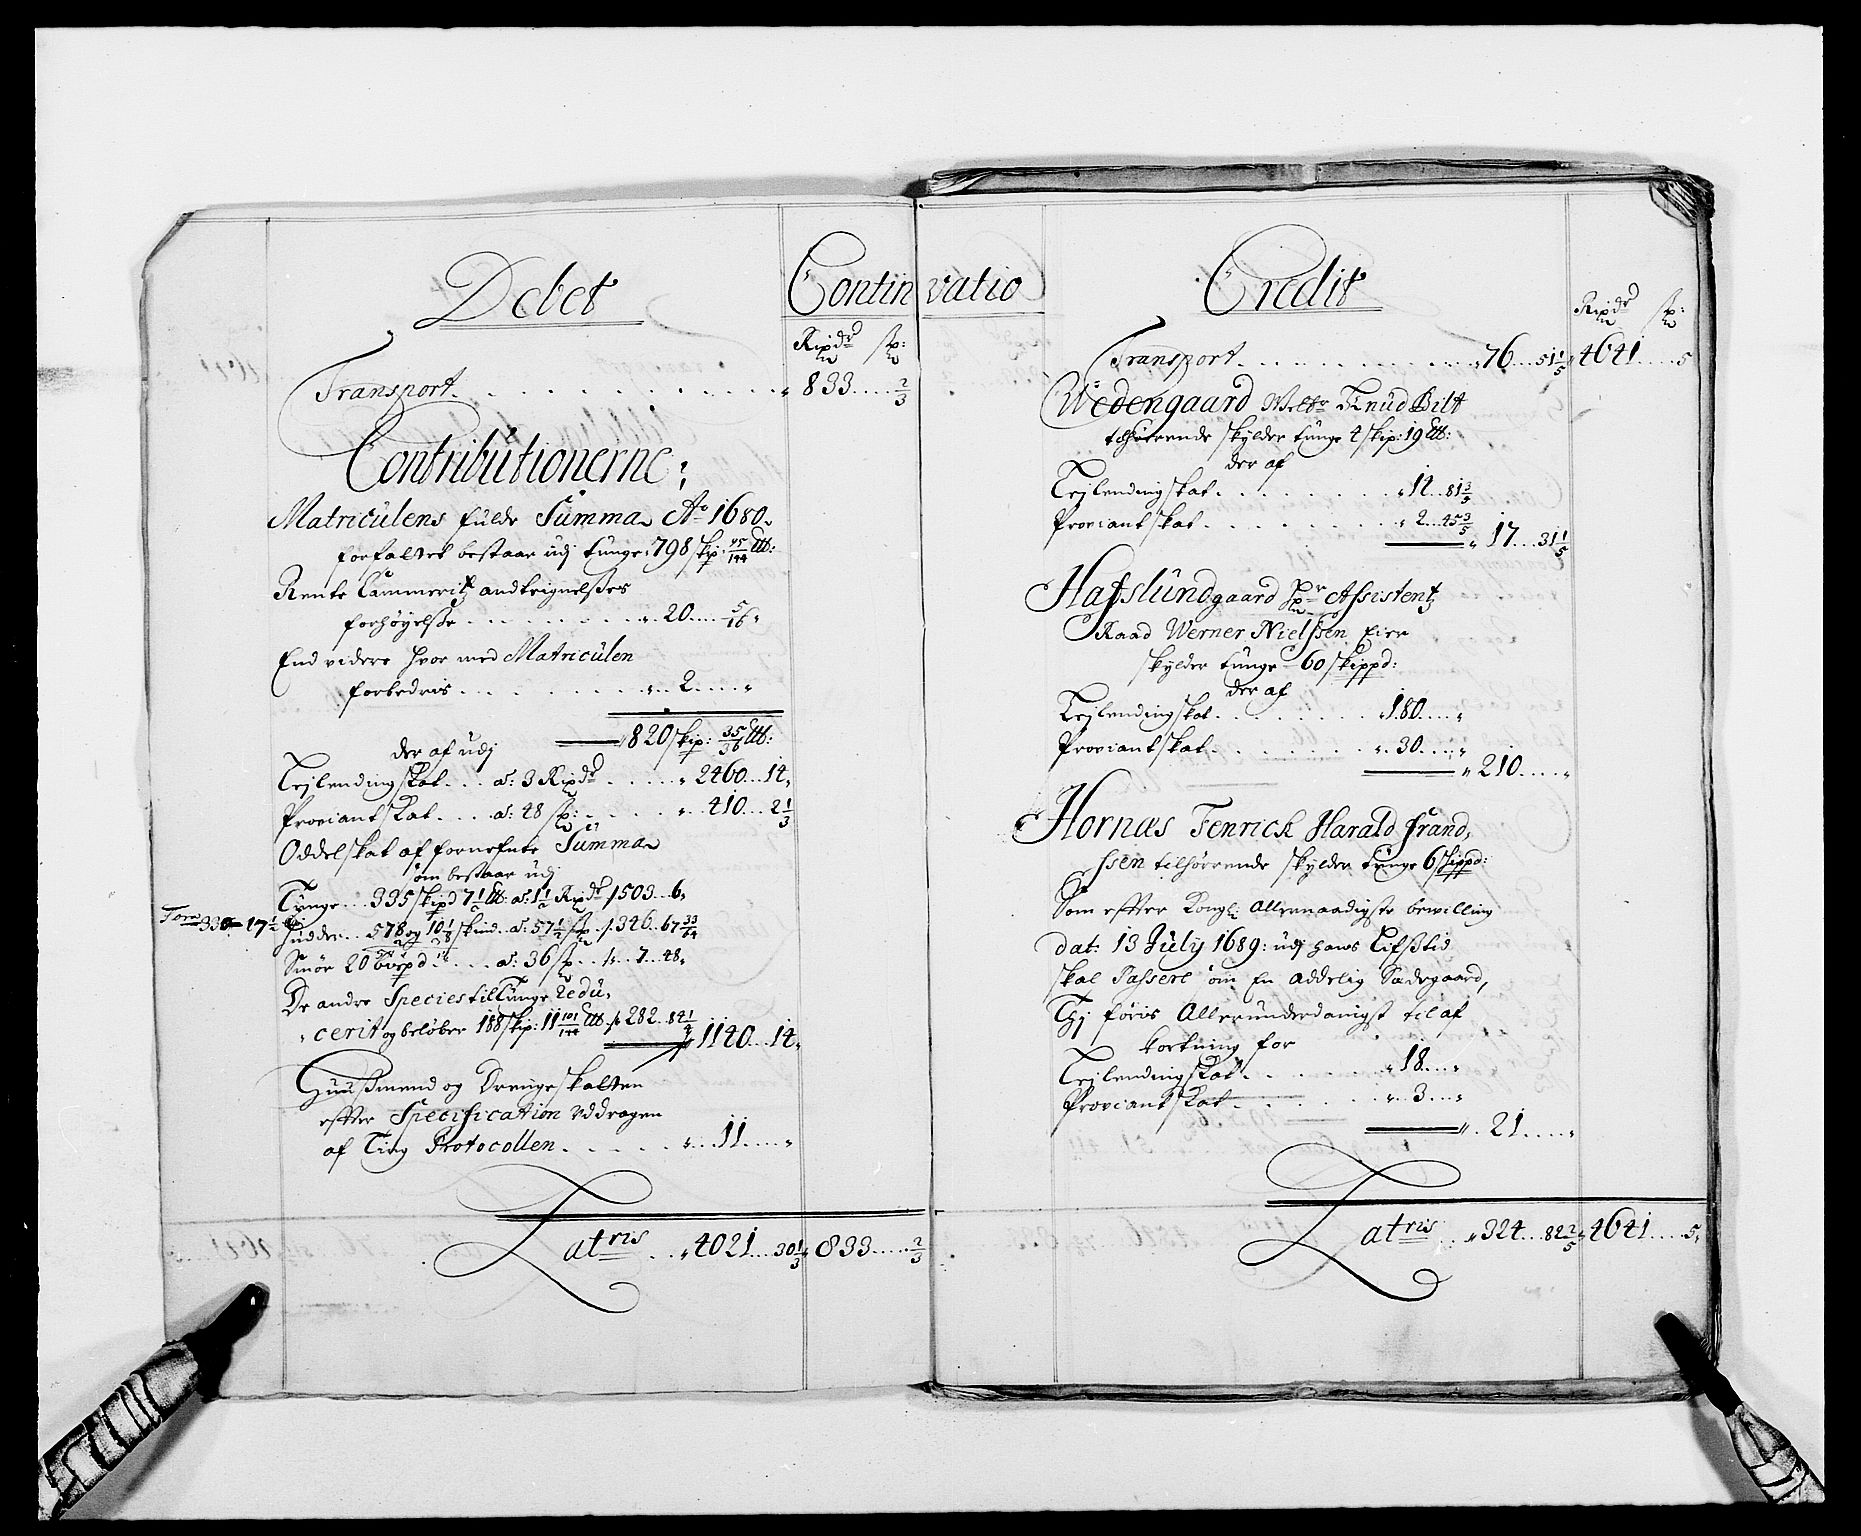 Debet
Continvatio
Rixdr sk:
Transport . . . . . . . . . . „ 833 . . . . 2/3
Contributionerne:
Matriculens fulde Summa Ao 1680
forfattet bestaar udj tunge: 798 skip: 45/144 lb:
Rente Cammeritz andteignelsses
forhøyelsse . . . . . . . „ 20 . . . 5/16 „
End videre hvor med Matriculen
forbedris . . . . . . . . „ 2 . . . „
820 skip: 35/36 lb:
der af udj
Leylendingskat . . . a: 3 Rixdr . . . . „ 2460 . . 14 „
Proviant skat . . . . a: 48 sk: . . . . . „ 410 . . . 2 1/3
Oddelskat af fornefnte Summa
som bestaar udj
Tunge . . . 335 skipd 7 1/2 lb a: 1 1/2 Rixdr / 503 . . 6 „
330 17 1/2
Hudder . . 578 og 10 1/8 skind a: 57 1/2 sk / 346 . . 67 33/64
Smør 20 . . . . a: 36 sk . . / . 7 . . 48 „
De andre Species til Tunge Redu,
cerit og beløber 188 skip: 11 101/144 lb / 282 . 84 1/4
„ 1140 . . 14 „
Huussmend og Drengeskatten
effter Specification Uddragen
af Ting Protocollen . . . . . . „ 11 . . . „
Latris . . „ 4021 . . 30 1/3 „ 833 . . . . 2/3
Credit
Rixdr sk:
Transport . . . . . . . . . „ 76 . . . 51 1/5 „ 4641 . . . . 5
Wedengaard Welbr Knud Bilt
tilhørende skylder tunge 4 skip: 19 lb:
der af
Leylendingskat . . . . . . . . „ 14 . . 81 3/5
Proviant skat . . . . . . . . „ 2 . . 45 3/5
„ 17 . . . 31 1/5
Hafslundgaard Hr Assistentz
Raad Werner Nielssen Eier
skylder tunge 60 skippd:
der af
Leylendingskat . . . . . . . „ 180 . . . „
Proviantskat . . . . . . . . „ 30 . . . „
„ 210 . . . . „
Hornæs Fenrick Harald Frand,
ssen tilhørende skylder tunge 6 skippd:
Som effter Kongl: Allernaadigste bewilling
dat: 13 July 1689: udj hans Lifsstid
skal Passere som En addelig Sædegaard,
Thj føris Allerunderdanigst til af
kortning for
Leylendingskat . . . . . . „ 18 . . . „
Proviant skat . . . . . . . „ 3 . . . „
„ 21 . . . . „
Latris . . „ 324 . . . 82 2/5 „ 4641 . . . . 5 „